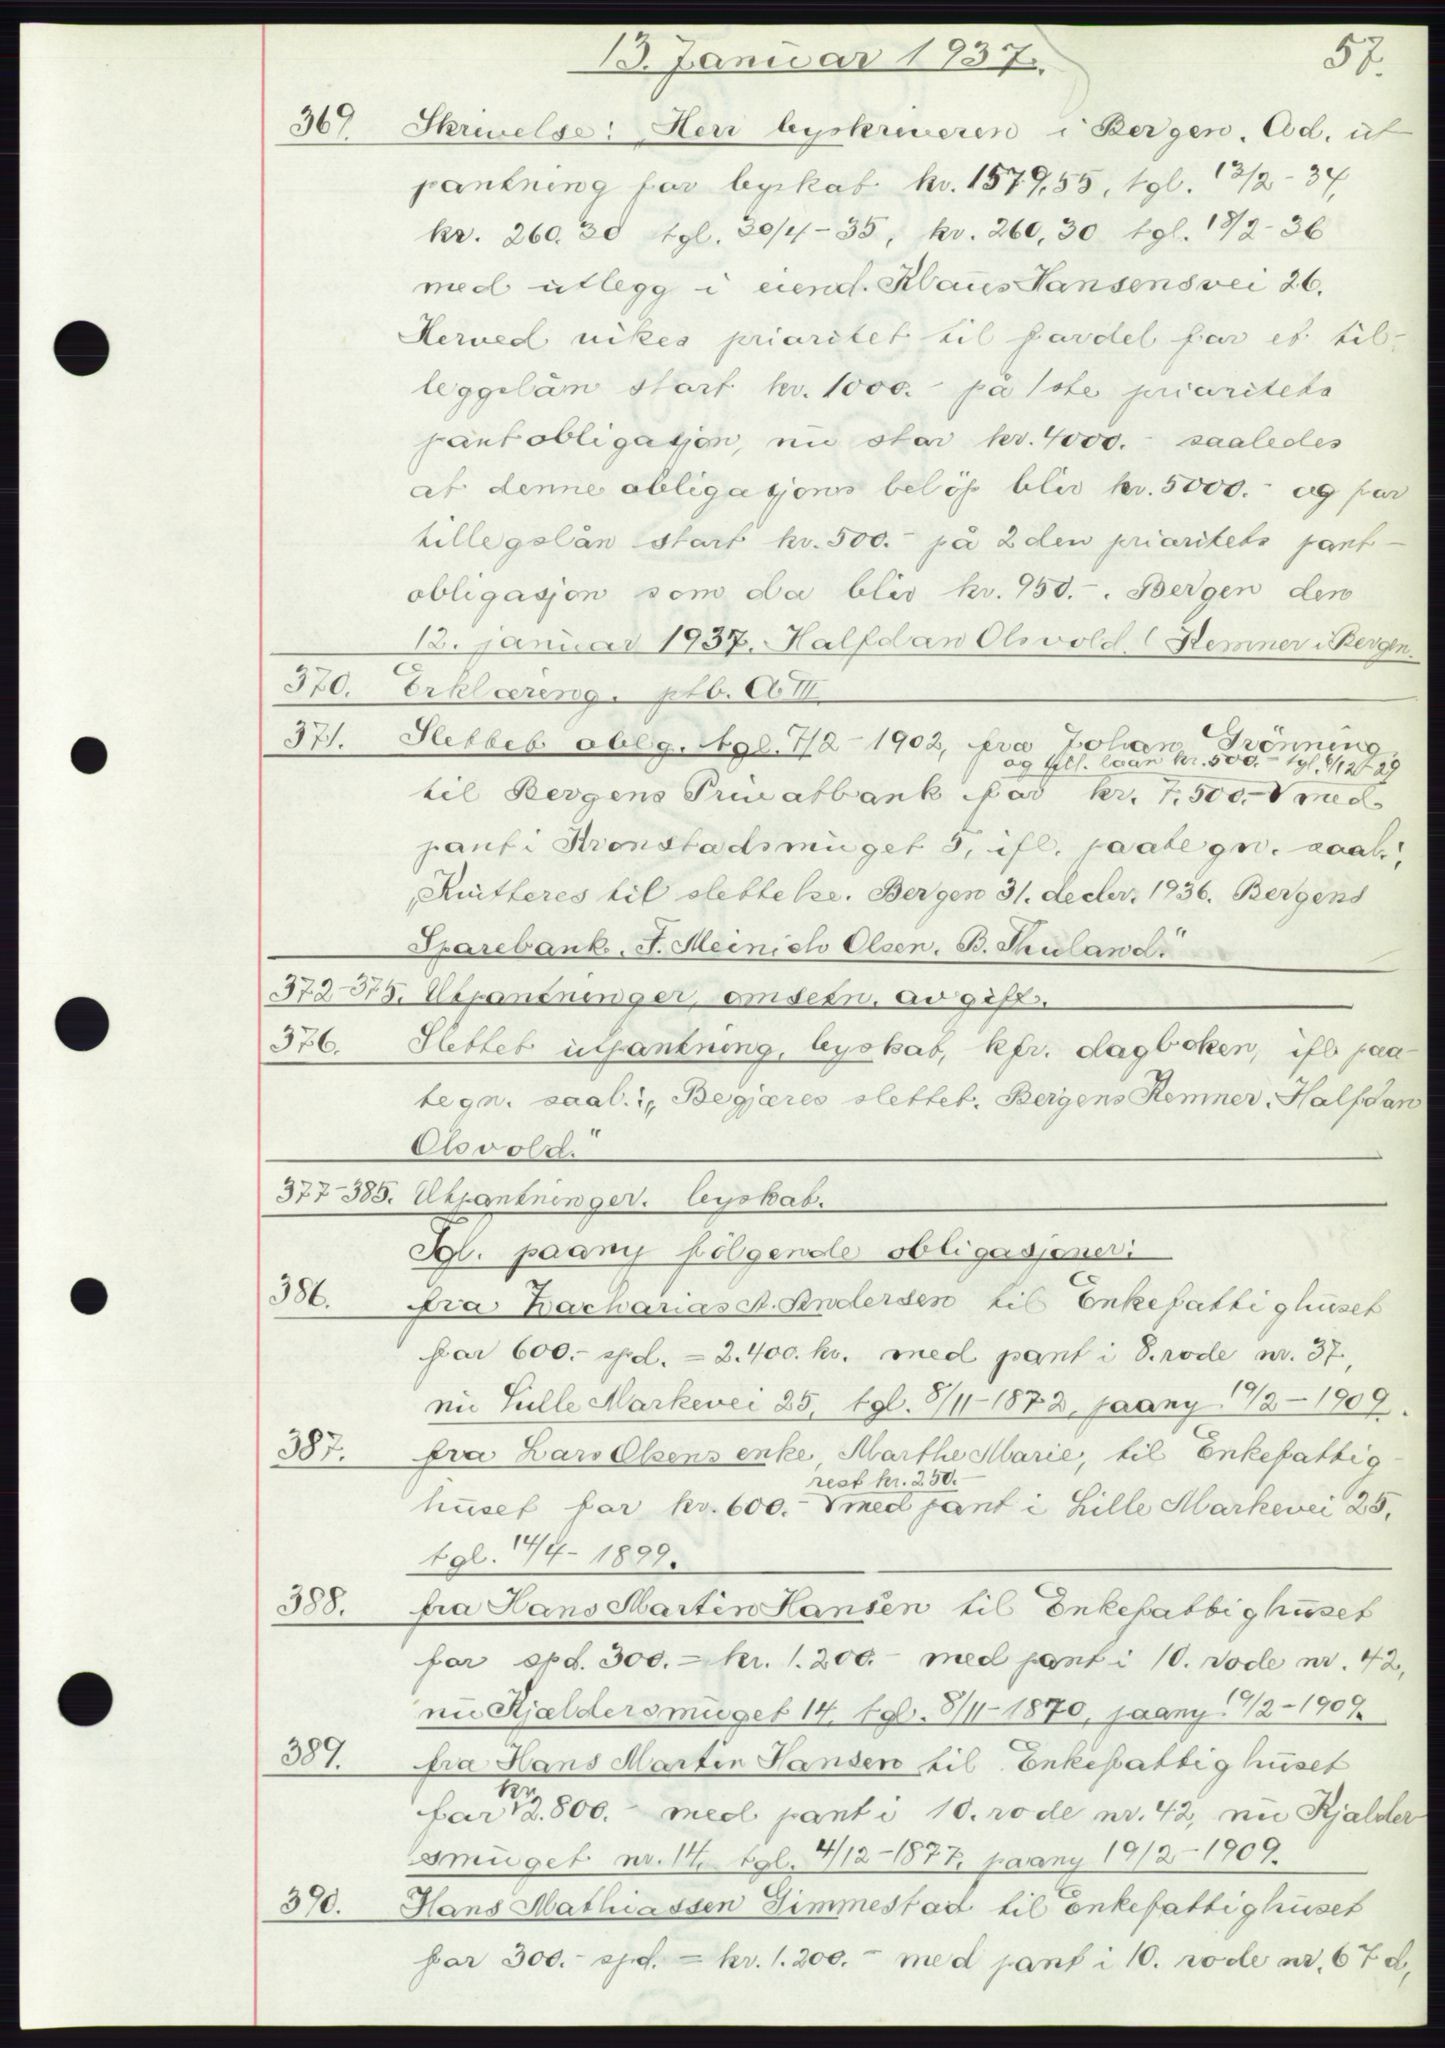 13. Januar 1937. 57.
369. Skrivelse: „Herr byskriveren i Bergen. Ad. ut-
pantning for byskat kr. 1579,55, tgl. 13/2 - 34,
kr. 260.30 tgl. 30/4 - 35, kr. 260,30 tgl. 18/2 - 36
med utlegg i eiend. Klaus Hansensvei 26.
Herved vikes prioritet til fordel for et til-
leggslån stort kr. 1000.- på 1ste prioritets
pantobligasjon, nu stor kr. 4000.- saaledes
at denne obligasjons beløp blir kr. 5000.- og for
tillegslån stort kr. 500.- på 2den prioritets pant-
obligasjon som da blir kr. 950.-. Bergen den
12. januar 1937. Halfdan Olsvold. (Kemner i Bergen.
370. Erklæring. ptb. A III
371. Slettet oblg. tgl. 7/2 - 1902, fra Johan Grönning
og till. laan kr. 500.- tgl. 6/12-29
til Bergens Privatbank for kr. 7.500.- V med
pant i Kronstadsmuget 5, ifl. paategn. saal.:
„Kvitteres til slettelse. Bergen 31. decbr. 1936. Bergens
Sparebank. F. Meinich Olsen. B. Thuland."
372-375. Utpantninger, omsetn. avgift.
376. Slettet utpantning, byskat, kfr. dagboken, ifl paa-
tegn. saal.: „Begjæres slettet. Bergens Kemner. Halfdan
Olsvold."
377-385. Utpantninger. byskat.
Tgl. paany følgende obligasjoner:
386. fra Zacharias A. Andersen til Enkefattighuset
for 600.- spd. = 2.400. kr. med pant i 8. rode nr. 37,
nu Lille Markevei 25, tgl. 8/11-1872, paany 19/2 - 1909.
387. fra Lars Olsens enke, Marthe Marie, til Enkefattig-
rest kr. 250.-
huset for kr. 600.- V med pant i Lille Markevei 25,
tgl. 14/4 - 1899.
388. fra Hans Martin Hansen til Enkefattighuset
for spd. 300. = kr. 1.200.- med pant i 10. rode nr. 42,
nu Kjældersmuget 14, tgl. 8/11-1870, paany 19/2-1909.
389. fra Hans Martin Hansen til Enkefattighuset
kr
for V 2.800.- med pant i 10. rode nr. 42, nu Kjælder
smuget nr. 14, tgl. 4/12-1877, paany 19/2-1909.
390. Hans Mathiassen Gimmestad til Enkefattighuset
for 300.- spd. = kr. 1.200.- med pant i 10. rode nr. 67 d,